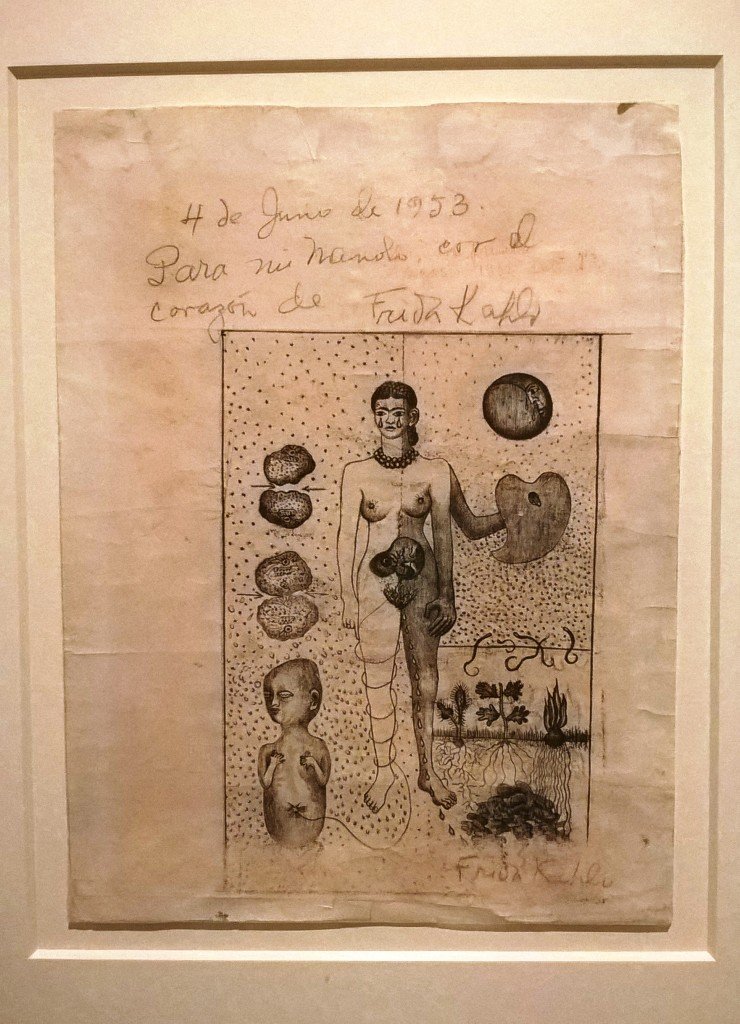 4 de Junio de 1953.
Para mi Manolo, con el
corazón de Frida Kahlo
Frida Kahlo